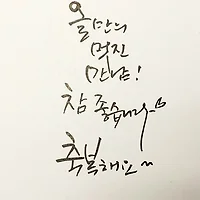 올만의
멋진
만남!
참 좋습니다
축복해요~